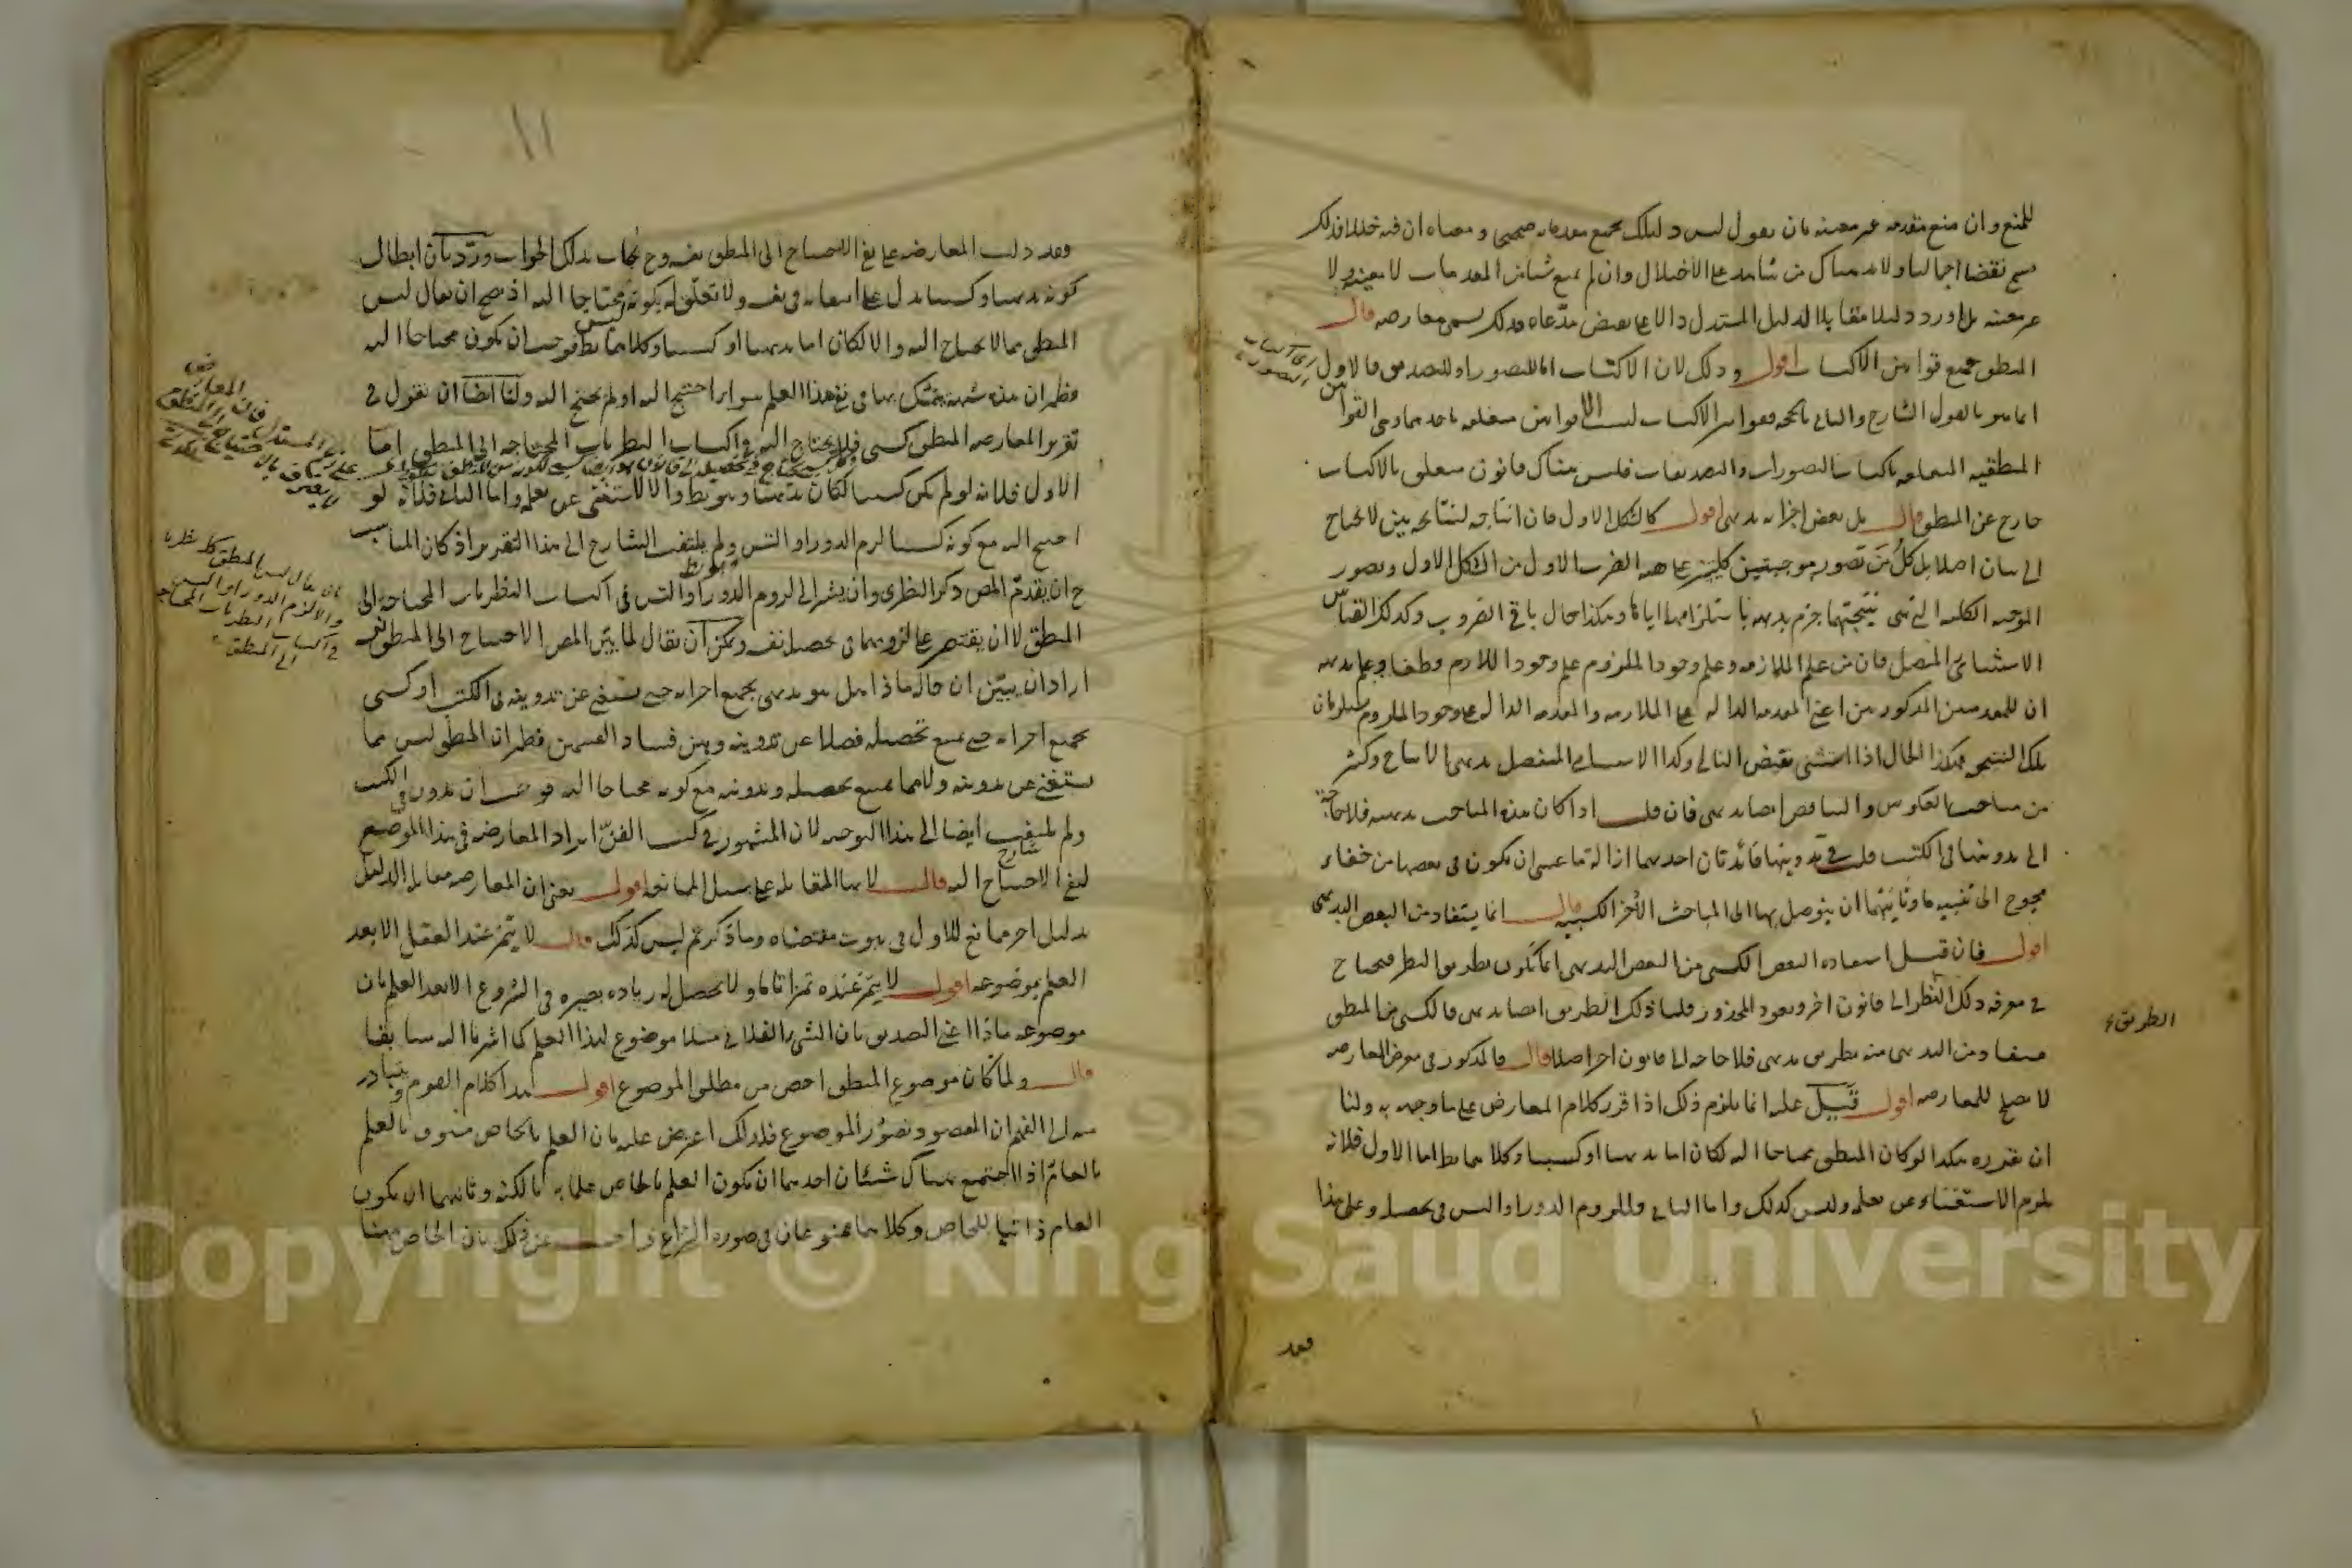 للمنع وان منع مقدمه غير معينه بان يقول ليس دليلك بجميع مقدماته صحيحا ومعناه ان فيه خللا فذلك
يسمى نقضا اجماليا ولا بد هناك من شاهد على الاختلال وان لم يمنع شيئا من المقدمات لا معينه ولا
غير معينه بل اورد دليلا مقابلا لدليل المستدل دالا على نقيض مدعاه فذلك يسمى معارضه قال
المنطق مجموع قوانين الاكتساب اقول وذلك لان الاكتساب اما للتصور او للتصديق فالاول
انما هو بالقول الشارح والثانى بالحجه فقوانين الاكتساب ليست الا قوانين متعلقه باحدهما وهى القوانين
المنطقيه المتعلقه باكتساب التصورات والتصديقات فليس هناك قانون متعلق بالاكتساب
خارج عن المنطق قال بل بعض اجزائه بديهى اقول كالشكل الاول فان انتاجه لنتائجه بين لا يحتاج
الى بيان اصلا بل كل من تصور موجبتين كليتين على هيئه الضرب الاول من الشكل الاول وتصور
الموجبه الكليه التى هى نتيجتهما جزم بديهه باستلزامهما اياها وهكذا حال باقى الضروب وكذلك القياس
الاستثنائى المتصل فان من علم الملازمه وعلم وجود الملزوم علم وجود اللازم قطعا وعلم بديهه
ان للمقدمتين المذكورتين اعنى المقدمه الداله على الملازمه والمقدمه الداله على وجود الملزوم يستلزمان
تلك النتيجه وهكذا الحال اذا استثنى نقيض التالى وكذا الاستثنائى المنفصل بديهى الانتاج وكثير
من مباحث العكوس والتناقض ايضا بديهى فان قلت اذا كان هذه المباحث بديهيه فلا حاجه
الى تدوينها فى الكتب قلت فى تدوينها فائدتان احديهما ازاله ما عسى ان يكون فى بعضها من خفاء
محوج الى تنبيه ما وثانيتهما ان يتوصل بها الى المباحث الأخر الكسبيه قال انما يستفاد من البعض البديهى
اقول فان قيل استفاده البعض الكسبى من البعض البديهى انما تكون بطريق النظر فيحتاج
فى معرفه ذلك النظر الى قانون اخر ويعود المحذور قلنا ذلك الطريق ايضا بديهى فالكسبى من المنطق
مستفاد من البديهى منه بطريق بديهى فلا حاجه الى قانون اخر اصلا قال فالمذكور فى معرض المعارضه
لا يصلح للمعارضه اقول قيل عليه انما يلزم ذلك اذا قرر كلام المعارض على ما وجهه به ولنا
ان نقرره هكذا لو كان المنطق محتاجا اليه لكان اما بديهيا او كسبيا وكلاهما بط اما الاول فلانه
يلزم الاستغناء عن تعلمه وليس كذلك واما الثانى فللزوم الدور او التس فى تحصيله وعلى هذا
فقد
الطريق
اى اكتساب التصور
١١
فقد دلت المعارضه على نفى الاحتياج الى المنطق نفسه وح يجاب بذلك الجواب ورد بان ابطال
كونه بديهيا وكسبيا يدل على انتفائه فى نفسه ولا تعلق له بكونه محتاجا اليه اذ يصح ان يقال ليس
المنطق مما لا يحتاج اليه والا لكان اما بديهيا او كسبيا وكلاهما بط فوجب ان يكون محتاجا اليه
فظهر ان هذه شبهه يتمسك بها فى نفى هذا العلم سواء احتيج اليه او لم يحتج اليه ولنا ايضا ان نقول فى
تقرير المعارضه المنطق كسبى فلا يحتاج اليه فى اكتساب النظريات المحتاجه الى المنطق اما
الاول فلانه لو لم يكن كسبيا لكان بديهيا وهو بط والا لاستغنى عن تعلمه واما الثانى فلانه لو
احتيج اليه مع كونه كسبيا لزم الدور او التس ولم يلتفت الشارح الى هذا التقرير اذ كان المناسب
ح ان يقدم المص ذكر النظرى وان يشير الى لزوم الدور او التس فى اكتساب النظريات المحتاجه الى
المنطق لا ان يقتصر على لزومهما فى تحصيله نفسه ويمكن ان يقال لما بين المص الاحتياج الى المنطق نفسه
اراد ان يبين ان حاله ماذا هل هو بديهى بجميع اجزائه حتى يستغنى عن تدوينه فى الكتب او كسبى
بجميع اجزائه حتى يمتنع تحصيله فضلا عن تدوينه وبين فساد القسمين فظهر ان المنطق ليس مما
يستغنى عن تدوينه ولا مما يمتنع تحصيله وتدوينه مع كونه محتاجا اليه فوجب ان يدون فى الكتب
ولم يلتفت ايضا الى هذا التوجيه لان المشهور فى كتب الفن ايراد المعارضه فى هذا الموضع
لنفى الاحتياج اليه قال لانها المقابله على سبيل الممانعه اقول يعنى ان المعارضه مقابله الدليل
بدليل اخر ممانع للاول فى ثبوت مقتضاه وما ذكرتم ليس كذلك قال لا يتميز عند العقل الا بعد
العلم بموضوعه اقول لا يتميز عنده تميزا تاما ولا يحصل له زياده بصيره فى الشروع الا بعد العلم بان
موضوعه ماذا اعنى التصديق بان الشئ الفلانى مثلا موضوع لهذا العلم كما اشرنا اليه سابقا
قال ولما كان موضوع المنطق اخص من مطلق الموضوع اقول هذا كلام القوم ويتبادر
منه الى الفهم ان المقصود تصور الموضوع فلذلك اعترض عليه بان العلم بالخاص مسبوق بالعلم
بالعام اذا اجتمع هناك شيئان احدهما ان يكون العلم بالخاص علما به بالكنه وثانيهما ان يكون
العام ذاتيا للخاص وكلاهما ممنوعان فى صوره النزاع واجيب عن ذلك بان الخاص ههنا